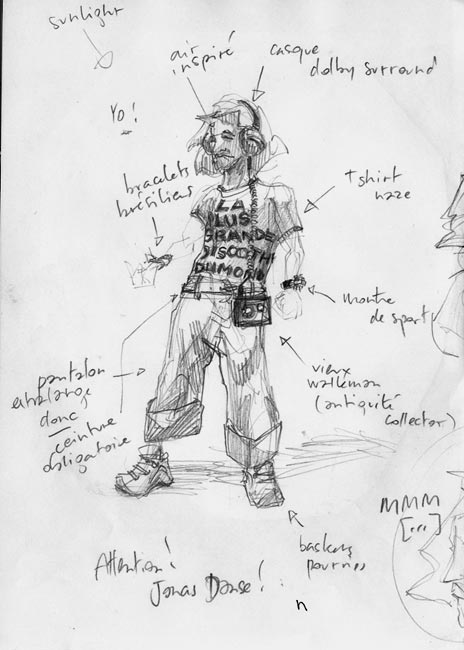 sunlight
air
inspiré
casque
dolby surround
Yo!
bracelets
brésiliens
t shirt
naze
LA
PLUS
GRANDE
DISCOTH
DUMOND
montre
de sport
pantalon
extralarge
donc
ceinture
obligatoire
vieux
walkman
(antiquité
collector)
MMM
[...]
baskets
pourries
Attention!
Jonas Danse!
n